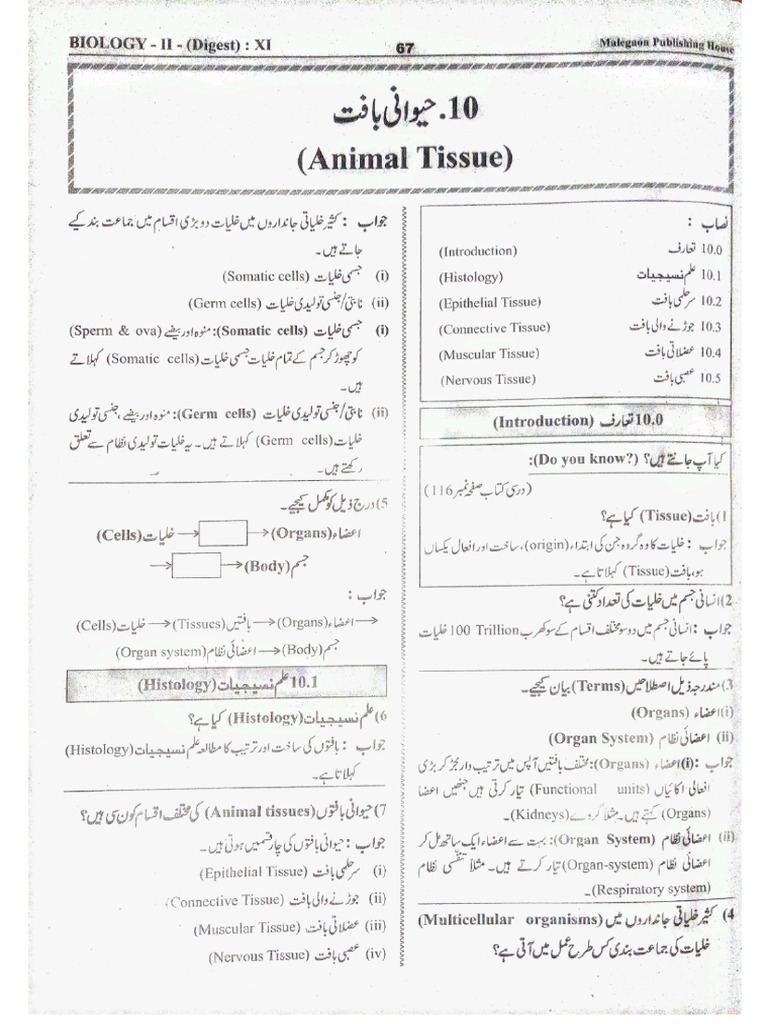 BIOLOGY - II - (Digest) : XI
67
Malegaon Publishing House
10. حیوانی بافت
(Animal Tissue)
نصاب :
10.0 تعارف (Introduction)
10.1 علم نسیجیات (Histology)
10.2 سرحلمی بافت (Epithelial Tissue)
10.3 جوڑنے والی بافت (Connective Tissue)
10.4 عضلاتی بافت (Muscular Tissue)
10.5 عصبی بافت (Nervous Tissue)
10.0 تعارف (Introduction)
کیا آپ جانتے ہیں؟ (Do you know?):
(درسی کتاب صفحہ نمبر 116)
1) بافت (Tissue) کیا ہے؟
جواب : خلیات کا وہ گروہ جن کی ابتداء (origin)، ساخت اور افعال یکساں
ہو، بافت (Tissue) کہلاتا ہے۔
2) انسانی جسم میں خلیات کی تعداد کتنی ہے؟
جواب : انسانی جسم میں دو سو مختلف اقسام کے سو کھرب 100 Trillion خلیات
پائے جاتے ہیں۔
3) مندرجہ ذیل اصطلاحیں (Terms) بیان کیجیے۔
(i) اعضاء (Organs)
(ii) اعضائی نظام (Organ System)
جواب : (i) اعضاء (Organs): مختلف بافتیں آپس میں ترتیب وار جڑ کر بڑی
افعالی اکائیاں (Functional units) تیار کرتی ہیں جنھیں اعضا
(Organs) کہتے ہیں۔ مثلاً گردے (Kidneys)۔
(ii) اعضائی نظام (Organ System): بہت سے اعضاء ایک ساتھ مل کر
اعضائی نظام (Organ-system) تیار کرتے ہیں۔ مثلاً تنفسی نظام
(Respiratory system)۔
4) کثیر خلیاتی جانداروں میں (Multicellular organisms)
خلیات کی جماعت بندی کس طرح عمل میں آتی ہے؟
جواب : کثیر خلیاتی جانداروں میں خلیات دو بڑی اقسام میں جماعت بند کیے
جاتے ہیں۔
(i) جسمی خلیات (Somatic cells)
(ii) نابتی/جنسی تولیدی خلیات (Germ cells)
(i) جسمی خلیات (Somatic cells): منوہ اور بیضے (Sperm & ova)
کو چھوڑ کر جسم کے تمام خلیات جسمی خلیات (Somatic cells) کہلاتے
ہیں۔
(ii) نابتی/جنسی تولیدی خلیات (Germ cells): منوہ اور بیضے، جنسی تولیدی
خلیات (Germ cells) کہلاتے ہیں۔ یہ خلیات تولیدی نظام سے تعلق
رکھتے ہیں۔
5) درج ذیل کو مکمل کیجیے۔
خلیات (Cells) → → اعضاء (Organs)
→ → جسم (Body)
جواب :
خلیات (Cells) → بافتیں (Tissues) → اعضاء (Organs) →
اعضائی نظام (Organ system) → جسم (Body)
10.1 علم نسیجیات (Histology)
6) علم نسیجیات (Histology) کیا ہے؟
جواب : بافتوں کی ساخت اور ترتیب کا مطالعہ علم نسیجیات (Histology)
کہلاتا ہے۔
7) حیوانی بافتوں (Animal tissues) کی مختلف اقسام کون سی ہیں؟
جواب : حیوانی بافتوں کی چار قسمیں ہوتی ہیں۔
(i) سرحلمی بافت (Epithelial Tissue)
(ii) جوڑنے والی بافت (Connective Tissue)
(iii) عضلاتی بافت (Muscular Tissue)
(iv) عصبی بافت (Nervous Tissue)